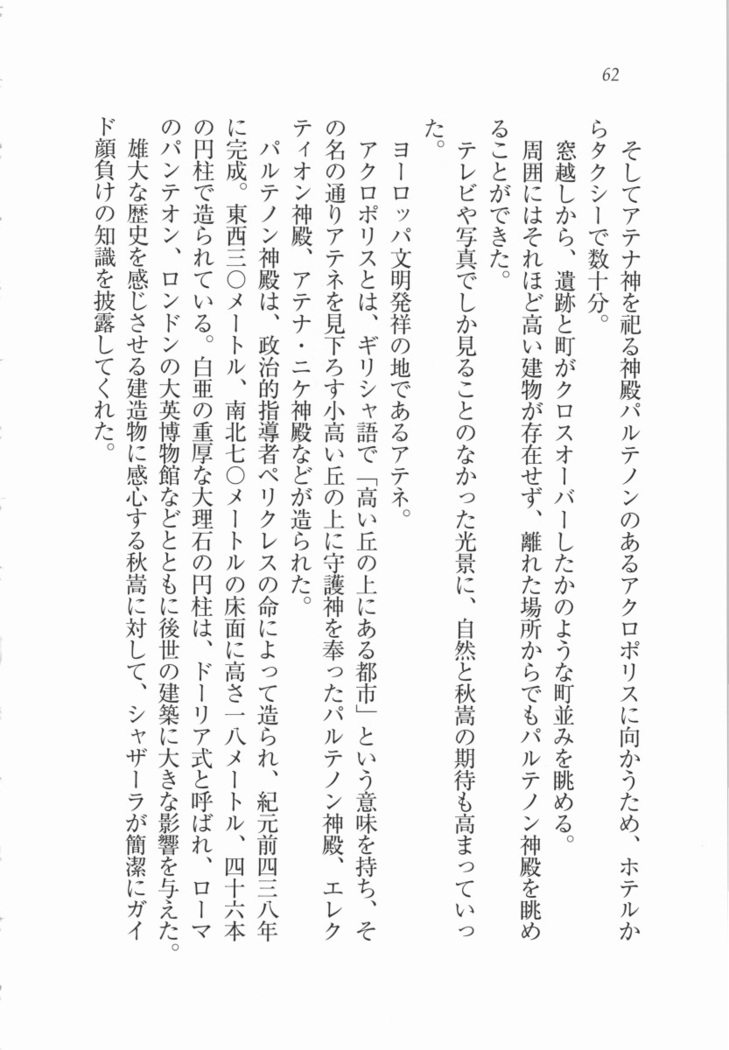 62
そしてアテナ神を祀る神殿パルテノンのあるアクロポリスに向かうため、ホテルか
らタクシーで数十分。
窓越しから、遺跡と町がクロスオーバーしたかのような町並みを眺める。
周囲にはそれほど高い建物が存在せず、離れた場所からでもパルテノン神殿を眺め
ることができた。
テレビや写真でしか見ることのなかった光景に、自然と秋嵩の期待も高まっていっ
た。
ヨーロッパ文明発祥の地であるアテネ。
アクロポリスとは、ギリシャ語で「高い丘の上にある都市」という意味を持ち、そ
の名の通りアテネを見下ろす小高い丘の上に守護神を奉ったパルテノン神殿、エレク
ティオン神殿、アテナ・ニケ神殿などが造られた。
パルテノン神殿は、政治的指導者ペリクレスの命によって造られ、紀元前四三八年
に完成。東西三〇メートル、南北七〇メートルの床面に高さ一八メートル、四十六本
の円柱で造られている。白亜の重厚な大理石の円柱は、ドーリア式と呼ばれ、ローマ
のパンテオン、ロンドンの大英博物館などとともに後世の建築に大きな影響を与えた。
雄大な歴史を感じさせる建造物に感心する秋嵩に対して、シャザーラが簡潔にガイ
ド顔負けの知識を披露してくれた。